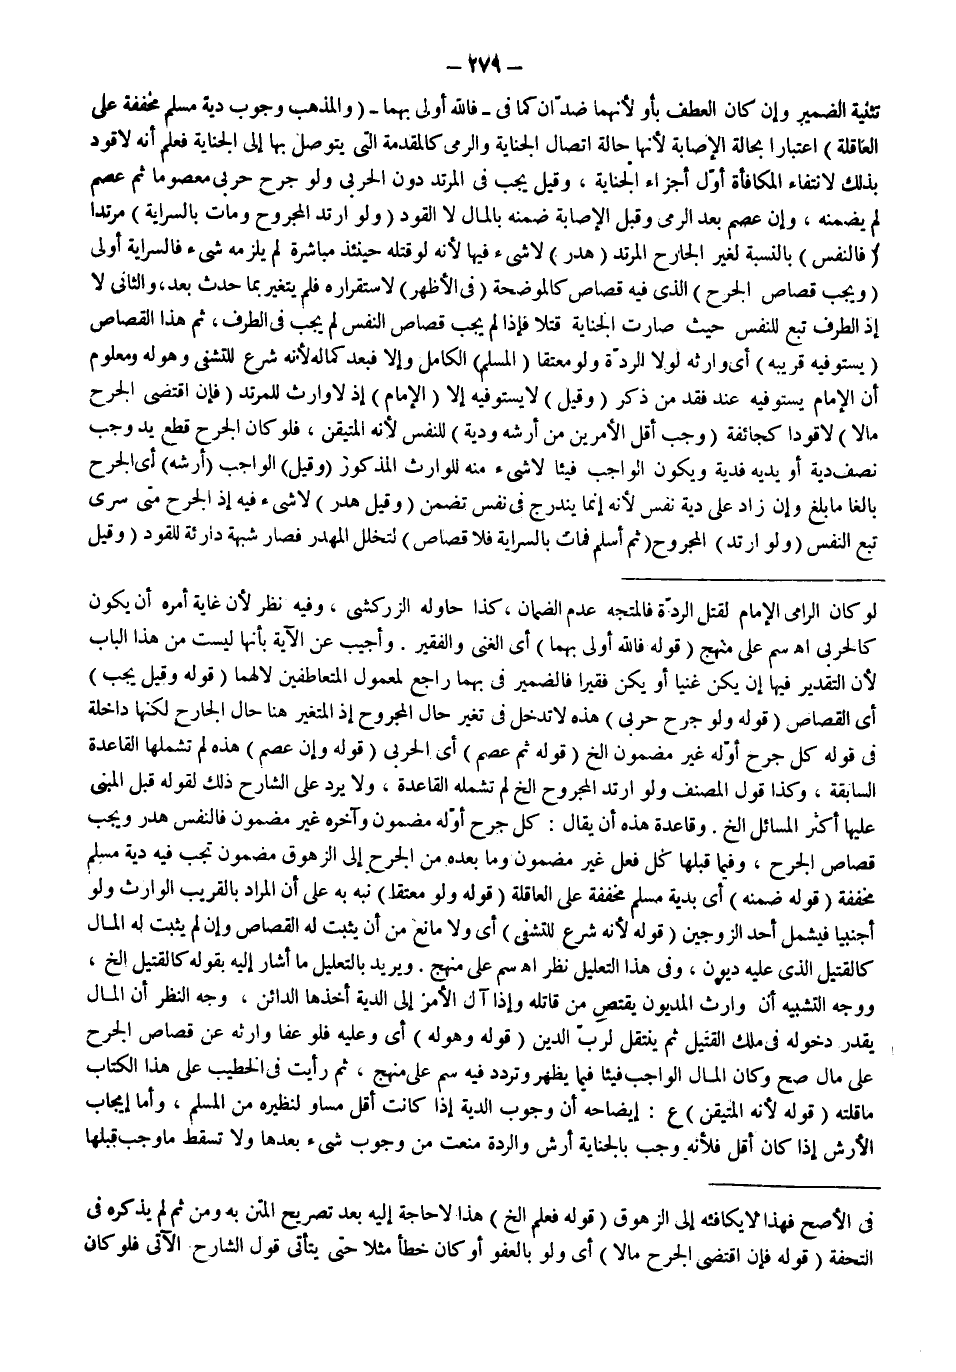 – ٢٧٩ –
تثنية الضمير وإن كان العطف بأو لأنهما ضدّان كما فى ـ فالله أولى بهما ـ ( والمذهب وجوب دية مسلم مخففة على
العاقلة ) اعتبارا بحالة الإصابة لأنها حالة اتصال الجناية والرمى كالمقدمة التى يتوصل بها إلى الجناية فعلم أنه لاقود
بذلك لانتفاء المكافأة أوّل أجزاء الجناية ، وقيل يجب فى المرتد دون الحربى ولو جرح حربى معصوما ثم عصم
لم يضمنه ، وإن عصم بعد الرمى وقبل الإصابة ضمنه بالمال لا القود ( ولو ارتد المجروح ومات بالسراية ) مرتدا
( فالنفس ) بالنسبة لغير الجارح المرتد ( هدر ) لاشىء فيها لأنه لو قتله حينئذ مباشرة لم يلزمه شىء فالسراية أولى
( ويجب قصاص الجرح ) الذى فيه قصاص كالموضحة ( فى الأظهر ) لاستقراره فلم يتغير بما حدث بعد، والثانى لا
إذ الطرف تبع للنفس حيث صارت الجناية قتلا فإذا لم يجب قصاص النفس لم يجب فى الطرف ، ثم هذا القصاص
( يستوفيه قريبه ) أى وارثه لولا الردّة ولو معتقا ( المسلم ) الكامل وإلا فبعد كماله لأنه شرع للتشفى وهو له ومعلوم
أن الإمام يستوفيه عند فقد من ذكر ( وقيل ) لايستوفيه إلا ( الإمام ) إذ لاوارث للمرتد ( فإن اقتضى الجرح
مالا ) لاقودا كجائفة ( وجب أقل الأمرين من أرشه ودية ) للنفس لأنه المتيقن ، فلو كان الجرح قطع يد وجب
نصف دية أو يديه فدية ويكون الواجب فيئا لاشىء منه للوارث المذكور ( وقيل ) الواجب ( أرشه ) أى الجرح
بالغا مابلغ وإن زاد على دية نفس لأنه إنما يندرج فى نفس تضمن ( وقيل هدر ) لاشىء فيه إذ الجرح متى سرى
تبع النفس ( ولو ارتد ) المجروح ( ثم أسلم فمات بالسراية فلا قصاص ) لتخلل المهدر فصار شبهة دارئة للقود ( وقيل
لو كان الرامى الإمام لقتل الردّة فالمتجه عدم الضمان ، كذا حاوله الزركشى ، وفيه نظر لأن غاية أمره أن يكون
كالحربى اهـ سم على منهج ( قوله فالله أولى بهما ) أى الغنى والفقير . وأجيب عن الآية بأنها ليست من هذا الباب
لأن التقدير فيها إن يكن غنيا أو يكن فقيرا فالضمير فى بهما راجع لمعمول المتعاطفين لالهما ( قوله وقيل يجب )
أى القصاص ( قوله ولو جرح حربى ) هذه لاتدخل فى تغير حال المجروح إذ المتغير هنا حال الجارح لكنها داخلة
فى قوله كل جرح أوّله غير مضمون الخ ( قوله ثم عصم ) أى الحربى ( قوله وإن عصم ) هذه لم تشملها القاعدة
السابقة ، وكذا قول المصنف ولو ارتد المجروح الخ لم تشمله القاعدة ، ولا يرد على الشارح ذلك لقوله قبل المبنى
عليها أكثر المسائل الخ . وقاعدة هذه أن يقال : كل جرح أوّله مضمون وآخره غير مضمون فالنفس هدر ويجب
قصاص الجرح ، وفيما قبلها كل فعل غير مضمون وما بعده من الجرح إلى الزهوق مضمون تجب فيه دية مسلم
مخففة ( قوله ضمنه ) أى بدية مسلم مخففة على العاقلة ( قوله ولو معتقا ) نبه به على أن المراد بالقريب الوارث ولو
أجنبيا فيشمل أحد الزوجين ( قوله لأنه شرع للتشفى ) أى ولا مانع من أن يثبت له القصاص وإن لم يثبت له المال
كالقتيل الذى عليه ديون ، وفى هذا التعليل نظر اهـ سم على منهج . ويريد بالتعليل ما أشار إليه بقوله كالقتيل الخ ،
ووجه التشبيه أن وارث المديون يقتص من قاتله وإذا آل الأمر إلى الدية أخذها الدائن ، وجه النظر أن المال
يقدر دخوله فى ملك القتيل ثم ينتقل لربّ الدين ( قوله وهو له ) أى وعليه فلو عفا وارثه عن قصاص الجرح
على مال صح وكان المال الواجب فيئا فيما يظهر وتردد فيه سم على منهج ، ثم رأيت فى الخطيب على هذا الكتاب
ماقلته ( قوله لأنه المتيقن ) ع : إيضاحه أن وجوب الدية إذا كانت أقل مساو لنظيره من المسلم ، وأما إيجاب
الأرش إذا كان أقل فلأنه وجب بالجناية أرش والردة منعت من وجوب شىء بعدها ولا تسقط ماوجب قبلها
فى الأصح فهذا لايكافئه إلى الزهوق ( قوله فعلم الخ ) هذا لاحاجة إليه بعد تصريح المتن به ومن ثم لم يذكره فى
التحفة ( قوله فإن اقتضى الجرح مالا ) أى ولو بالعفو أو كان خطأ مثلا حتى يتأتى قول الشارح الآتى فلو كان